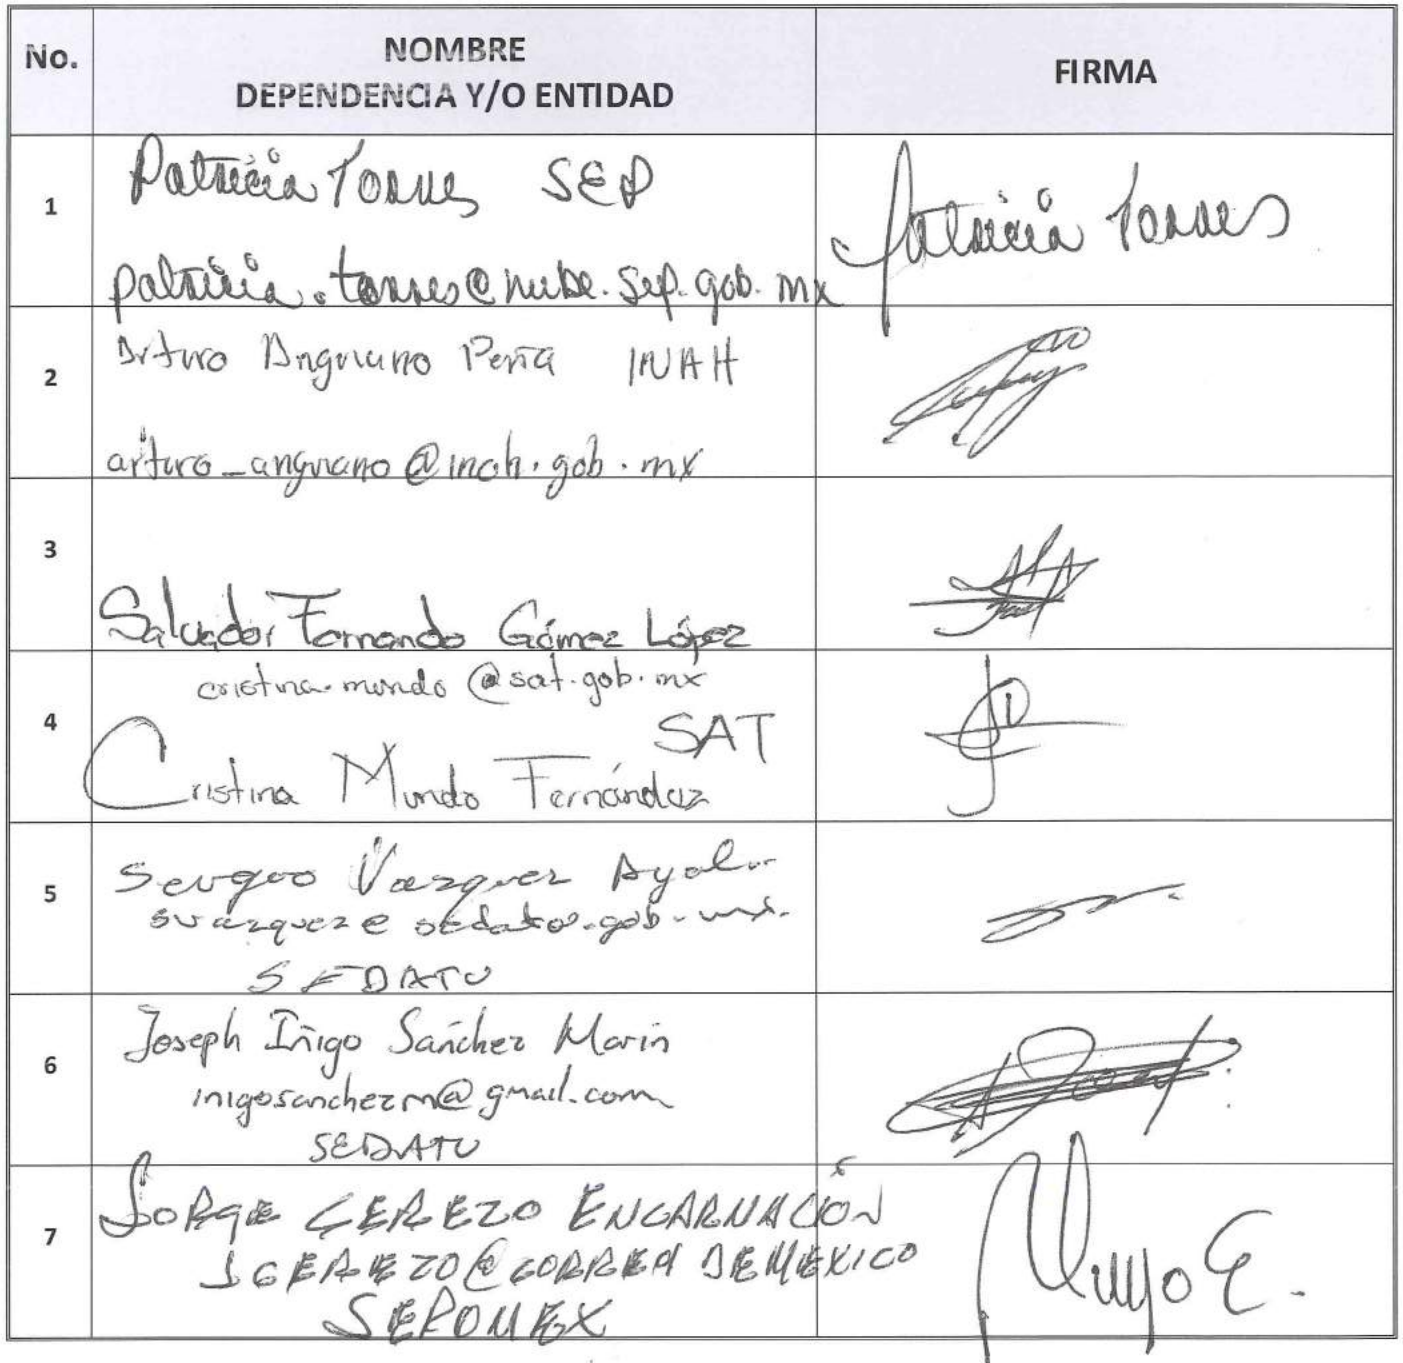 No.
NOMBRE
DEPENDENCIA Y/O ENTIDAD
FIRMA
1
Patricia Torres SEP
patricia.torres@nube.sep.gob.mx
Patricia Torres
2
Arturo Anguiano Peña INAH
arturo_anguiano@inah.gob.mx
3
Salvador Fernando Gómez López
4
cristina.mundo@sat.gob.mx
SAT
Cristina Mundo Fernández
5
Sergio Vazquez Ayala
svazquez@sedatu.gob.mx.
SEDATU
6
Joseph Iñigo Sánchez Marin
inigosanchezm@gmail.com
SEDATU
7
JORGE CEREZO ENCARNACIÓN
JCEREZO@CORREO DEMEXICO
SEPOMEX